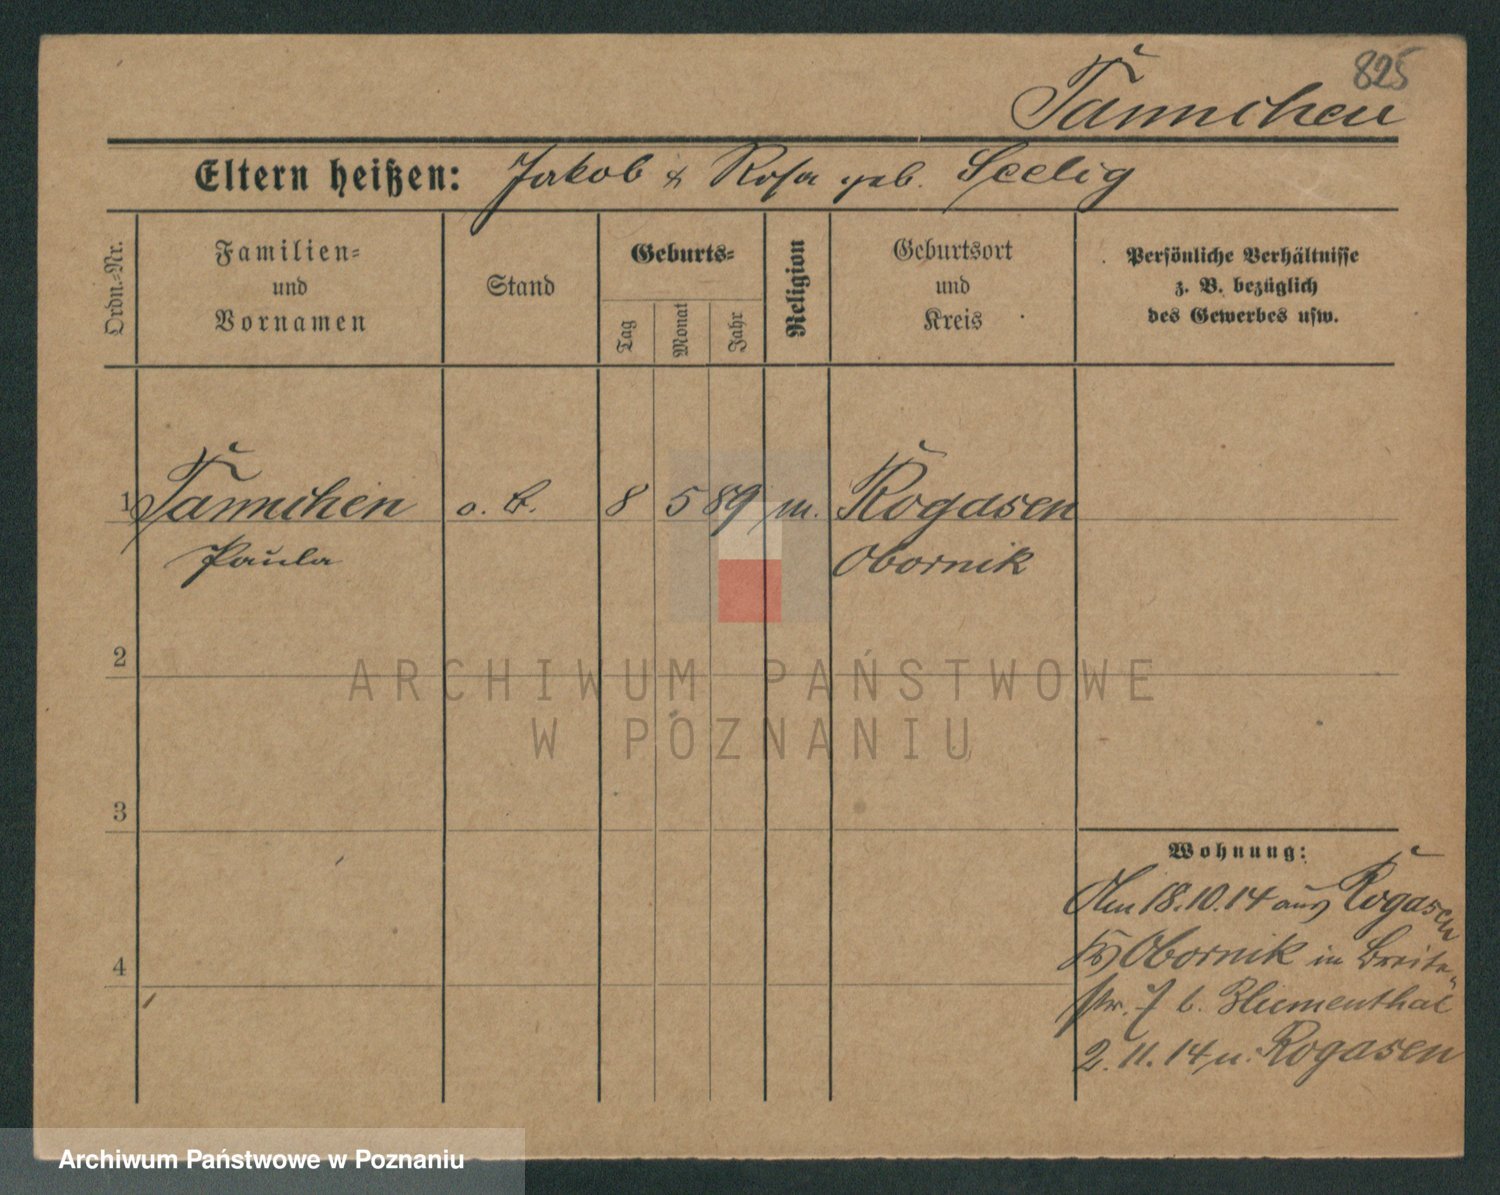 825
Tännchen
Eltern heißen: Jakob & Rosa geb. Seelig
Ordn.-Nr.
Familien-
und
Vornamen
Stand
Geburts-
Tag
Monat
Jahr
Religion
Geburtsort
und
Kreis
Persönliche Verhältnisse
z. B. bezüglich
des Gewerbes usw.
1 Tännchen o. B. 8 5 89 m. Rogasen
Paula Obornik
2
3
4
Wohnung:
Am 18.10.14 aus Rogasen
Obornik in Breite-
str. 7 b. Blumenthal
2.11.14 n. Rogasen
ARCHIWUM PAŃSTWOWE
W POZNANIU
Archiwum Państwowe w Poznaniu